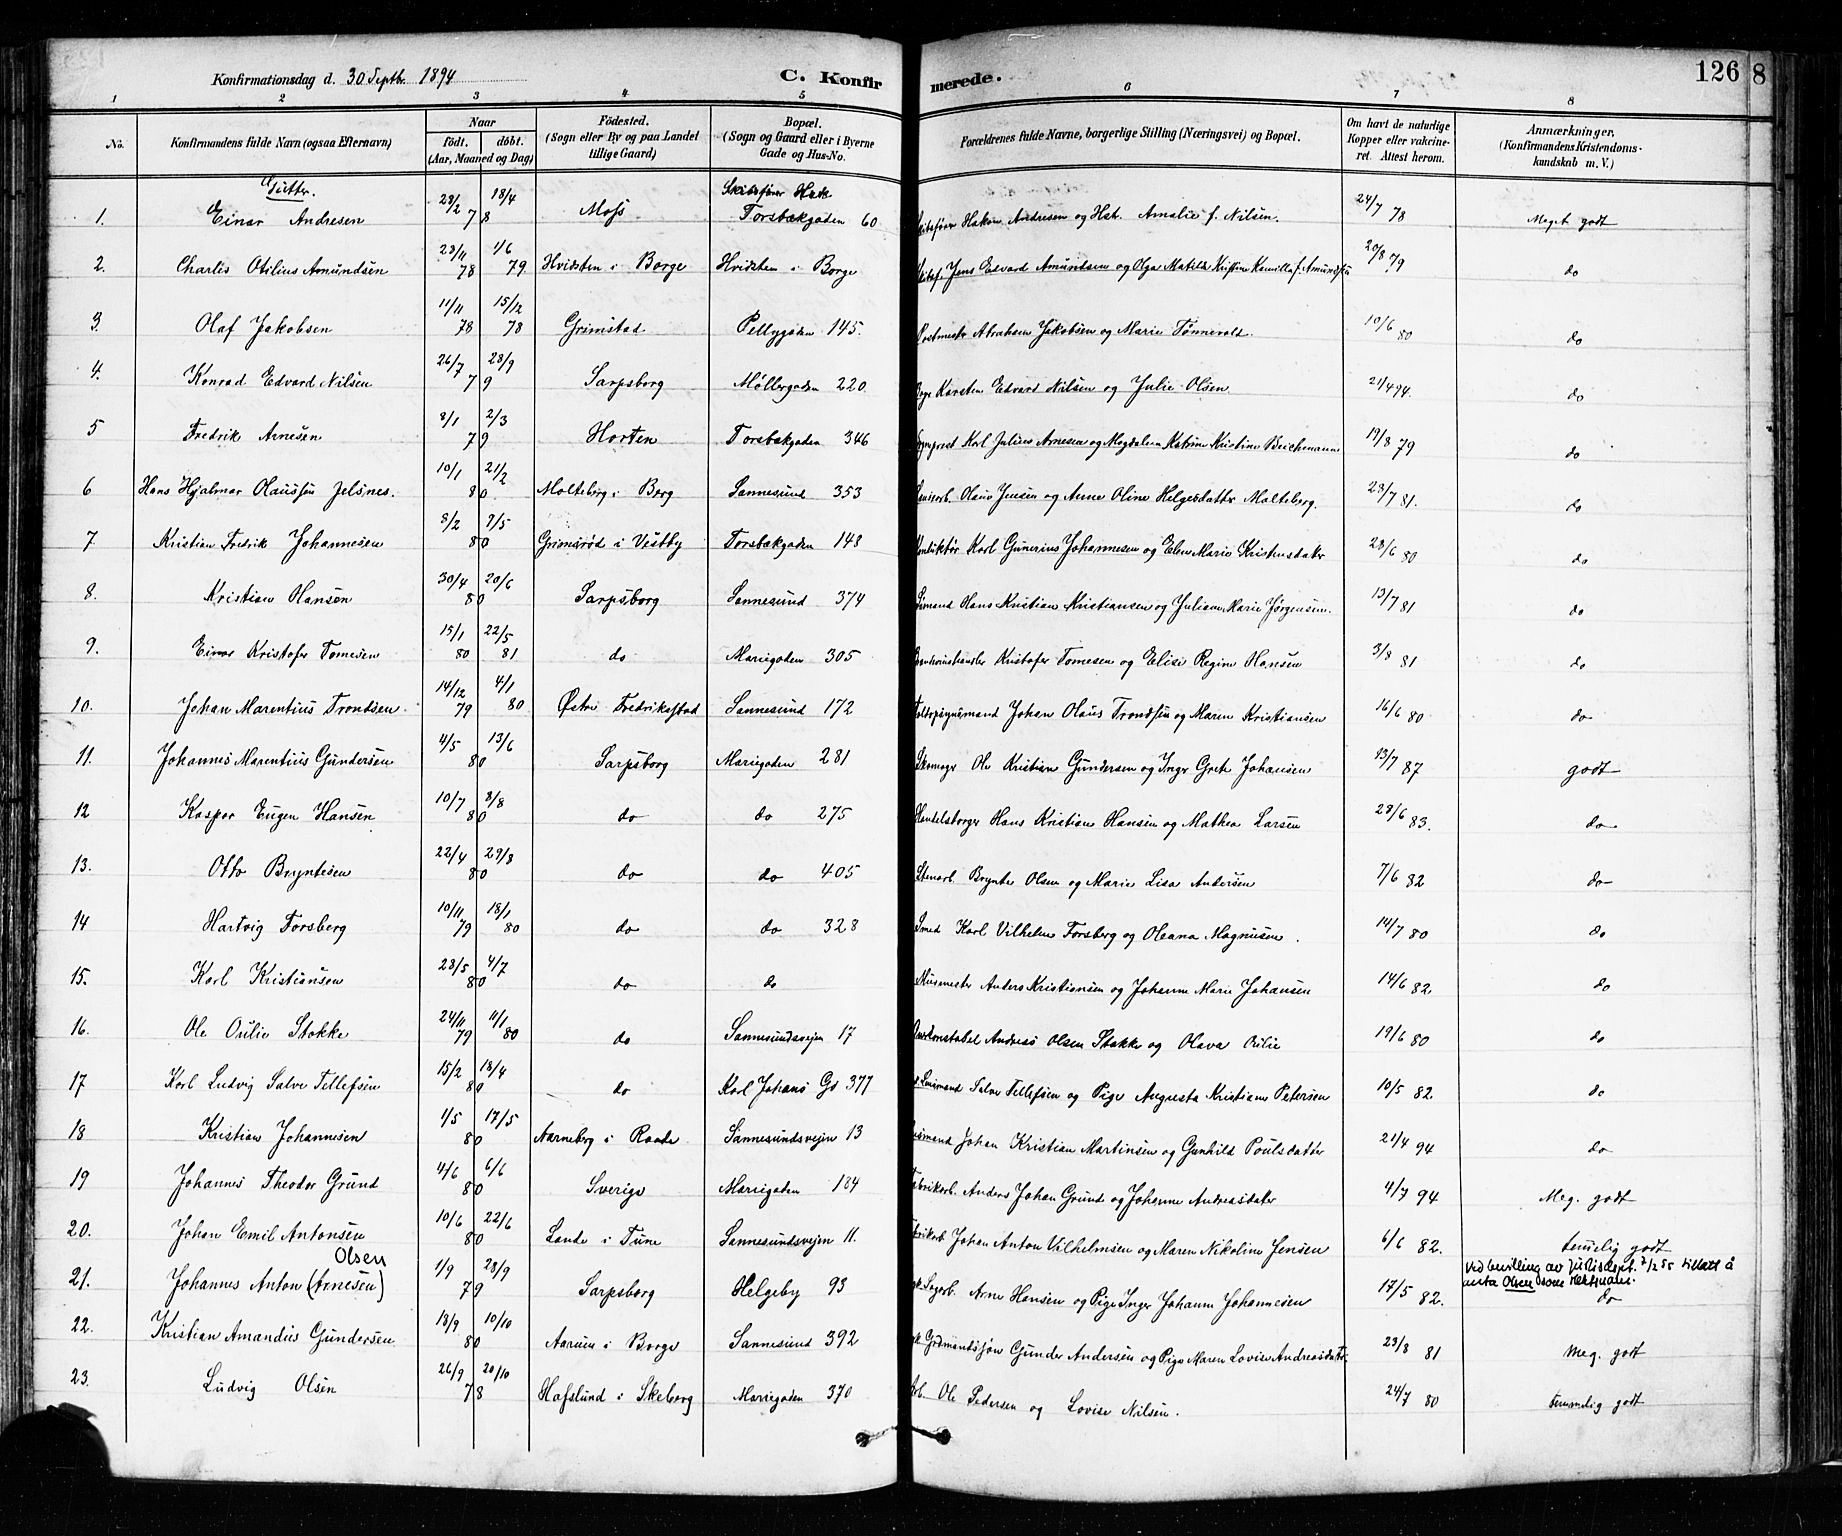 Konfirmationsdag d. 30 Septbr. 1894 C. Konfirmerede. 126 8
1 2 3 4 5 6 7 8
No. Konfirmandens fulde Navn (ogsaa Efternavn) Naar födt. döbt. (Aar, Maaned og Dag) Födested. (Sogn eller By og paa Landet tillige Gaard) Bopæl. (Sogn og Gaard eller i Byerne Gade og Hus-No. Forældrenes fulde Navne, borgerlige Stilling (Næringsvei) og Bopæl. Om havt de naturlige Kopper eller vakcineret. Attest herom. Anmærkninger, (Konfirmandens Kristendomskundskab m. V.)
Gutter.
1. Einar Andresen 28/2 18/4 78 Moss Torsbakgaden 60 Hakon Andresen og Hst. Amalie f. Nilsen. 24/7 78 Meget godt
2. Charlis Otilius Amundsen 23/11 78 1/6 79 Hvidsten i Borge Hvidsten i Borge Jens Edvard Amundsen og Olga Matilde Kristine Kamilla f. Amundsen 20/8 79 do
3. Olaf Jakobsen 11/11 78 15/12 78 Grimstad Pellygaden 145. Postmester Abraham Jakobsen og Marie Tønnevold. 10/6 80 do
4. Konrad Edvard Nilsen 26/7 28/9 79 Sarpsborg Møllergaden 220. Karsten Edvard Nilsen og Julie Olsen. 21/4 94. do
5 Fredrik Arnesen 8/1 2/3 79 Horten Torsbakgaden 346 Sogneprest Karl Julius Arnesen og Magdalena Katrine Kristine Beichmann 19/8 79 do
6 Hans Hjalmar Olaussen Jelsnes. 10/1 21/2 80. Molteberg i Berg Sannesund 353 Olaus Jensen og Anne Oline Helgesdatter Molteberg. 23/7 81. do
7 Kristian Fredrik Johannesen 8/2 9/5 80 Grimsrød i Vestby Torsbakgaden 148 Konduktør Karl Gunerius Johannesen og Elen Marie Kristensdatter 28/6 80 do
8. Kristian Hansen 30/4 20/6 80 Sarpsborg Sannesund 374 Hans Kristian Kristiansen og Juliane Marie Jørgensen. 13/7 81 do
9. Einar Kristofer Tomesen 15/1 80 22/5 81 do Mariegaden 305 Kristofer Tomesen og Elise Regine Hansen 3/8 81 do
10. Johan Marentius Trondsen 14/12 79 4/1 80 Østre Fredriksstad Sannesund 172 Johan Olaus Trondsen og Maren Kristiansen 16/6 80 do
11. Johannes Marentius Gundersen 4/5 13/6 80 Sarpsborg Mariegaden 281 Skomager Ole Kristian Gundersen og Inger Grete Johansen 13/7 87 godt
12 Kaspar Eugen Hansen 10/7 8/8 80 do do 275 Handelsborger Hans Kristian Hansen og Mathea Larsen 28/6 83. do
13. Otto Bryntesen 22/4 29/8 80 do do 405 Stenarb. Brynte Olsen og Marie Lisa Andersen 7/6 82 do
14 Hartvig Forsberg 10/11 79 18/1 80 do do 328 Smed Karl Vilhelm Forsberg og Oleana Magnusen. 14/7 80 do
15. Karl Kristiansen 23/5 4/7 80 do do Murmester Anders Kristiansen og Johanne Marie Johansen 14/6 82. do
16. Ole Orilie Stokke 24/11 79 11/1 80 do Sannesundsvejen 17 Andreas Olsen Stokke og Olava Orilie 19/6 80 do
17 Karl Ludvig Salve Tellefsen 15/2 18/4 80 do Karl Johans Gd 377 Salve Tellefsen og Pige Augusta Kristiane Petersen 10/5 82. do
18 Kristian Johannesen 1/5 17/5 80 Aarneberg i Raade Sannesundsvejen 13 Johan Kristian Martinsen og Gunhild Poulsdatter 21/4 94 do
19 Johannes Theodor Grund 4/6 6/6 80 Sverige Mariegaden 184 Fabrikarb. Anders Johan Grund og Johanne Andreasdater 4/7 94 Meg. godt
20. Johan Emil Antonsen 10/6 22/6 80 Lande i Tune Sannesundsvejen 11. Fabrikarb. Johan Anton Vilhelmsen og Maren Nikoline Jensen 6/6 82. temelig godt
Olsen Ved bevilling av Justisdept. 7/2 55 tillatt å anta Olsen som slektsnavn.
21. Johannes Anton (Arnesen) 1/9 28/9 79 Sarpsborg Helgeby 93 Sagarb. Arne Hansen og Pige Inger Johanne Johannesen 17/5 82. do
22. Kristian Amandus Gundersen 18/9 10/10 80 Aarum i Borge Sannesund 392 Gunder Andersen og Pige Maren Lovise Andreasdatr. 23/8 81 Meg. godt
23. Ludvig Olsen 26/9 20/10 78 Hafslund i Skeberg Mariegaden 370 Arb. Ole Pedersen og Lovise Nilsen. 24/7 80 Temmelig godt